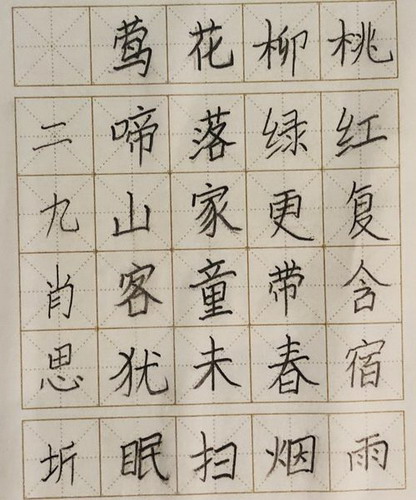 桃红复含宿雨
柳绿更带春烟
花落家童未扫
莺啼山客犹眠
二九肖思圻